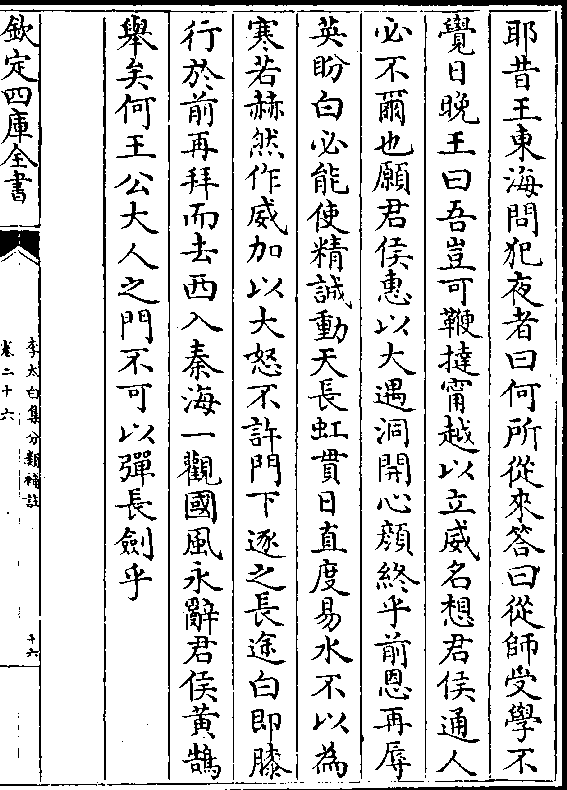 耶昔王東海問犯夜者曰何所從來答曰從師受學不
覺日晚王曰吾豈可鞭撻甯越以立威名想君侯通人
必不爾也願君侯惠以大遇洞開心顔終乎前恩再辱
英盼白必能使精誠動天長虹貫日直度易水不以為
寒若赫然作威加以大怒不許門下逐之長途白即膝
行於前再拜而去西入秦海一觀國風永辭君侯黄鵠
舉矣何王公大人之門不可以彈長劍乎
欽定四庫全書
李太白集分類補註
卷二十六
十六